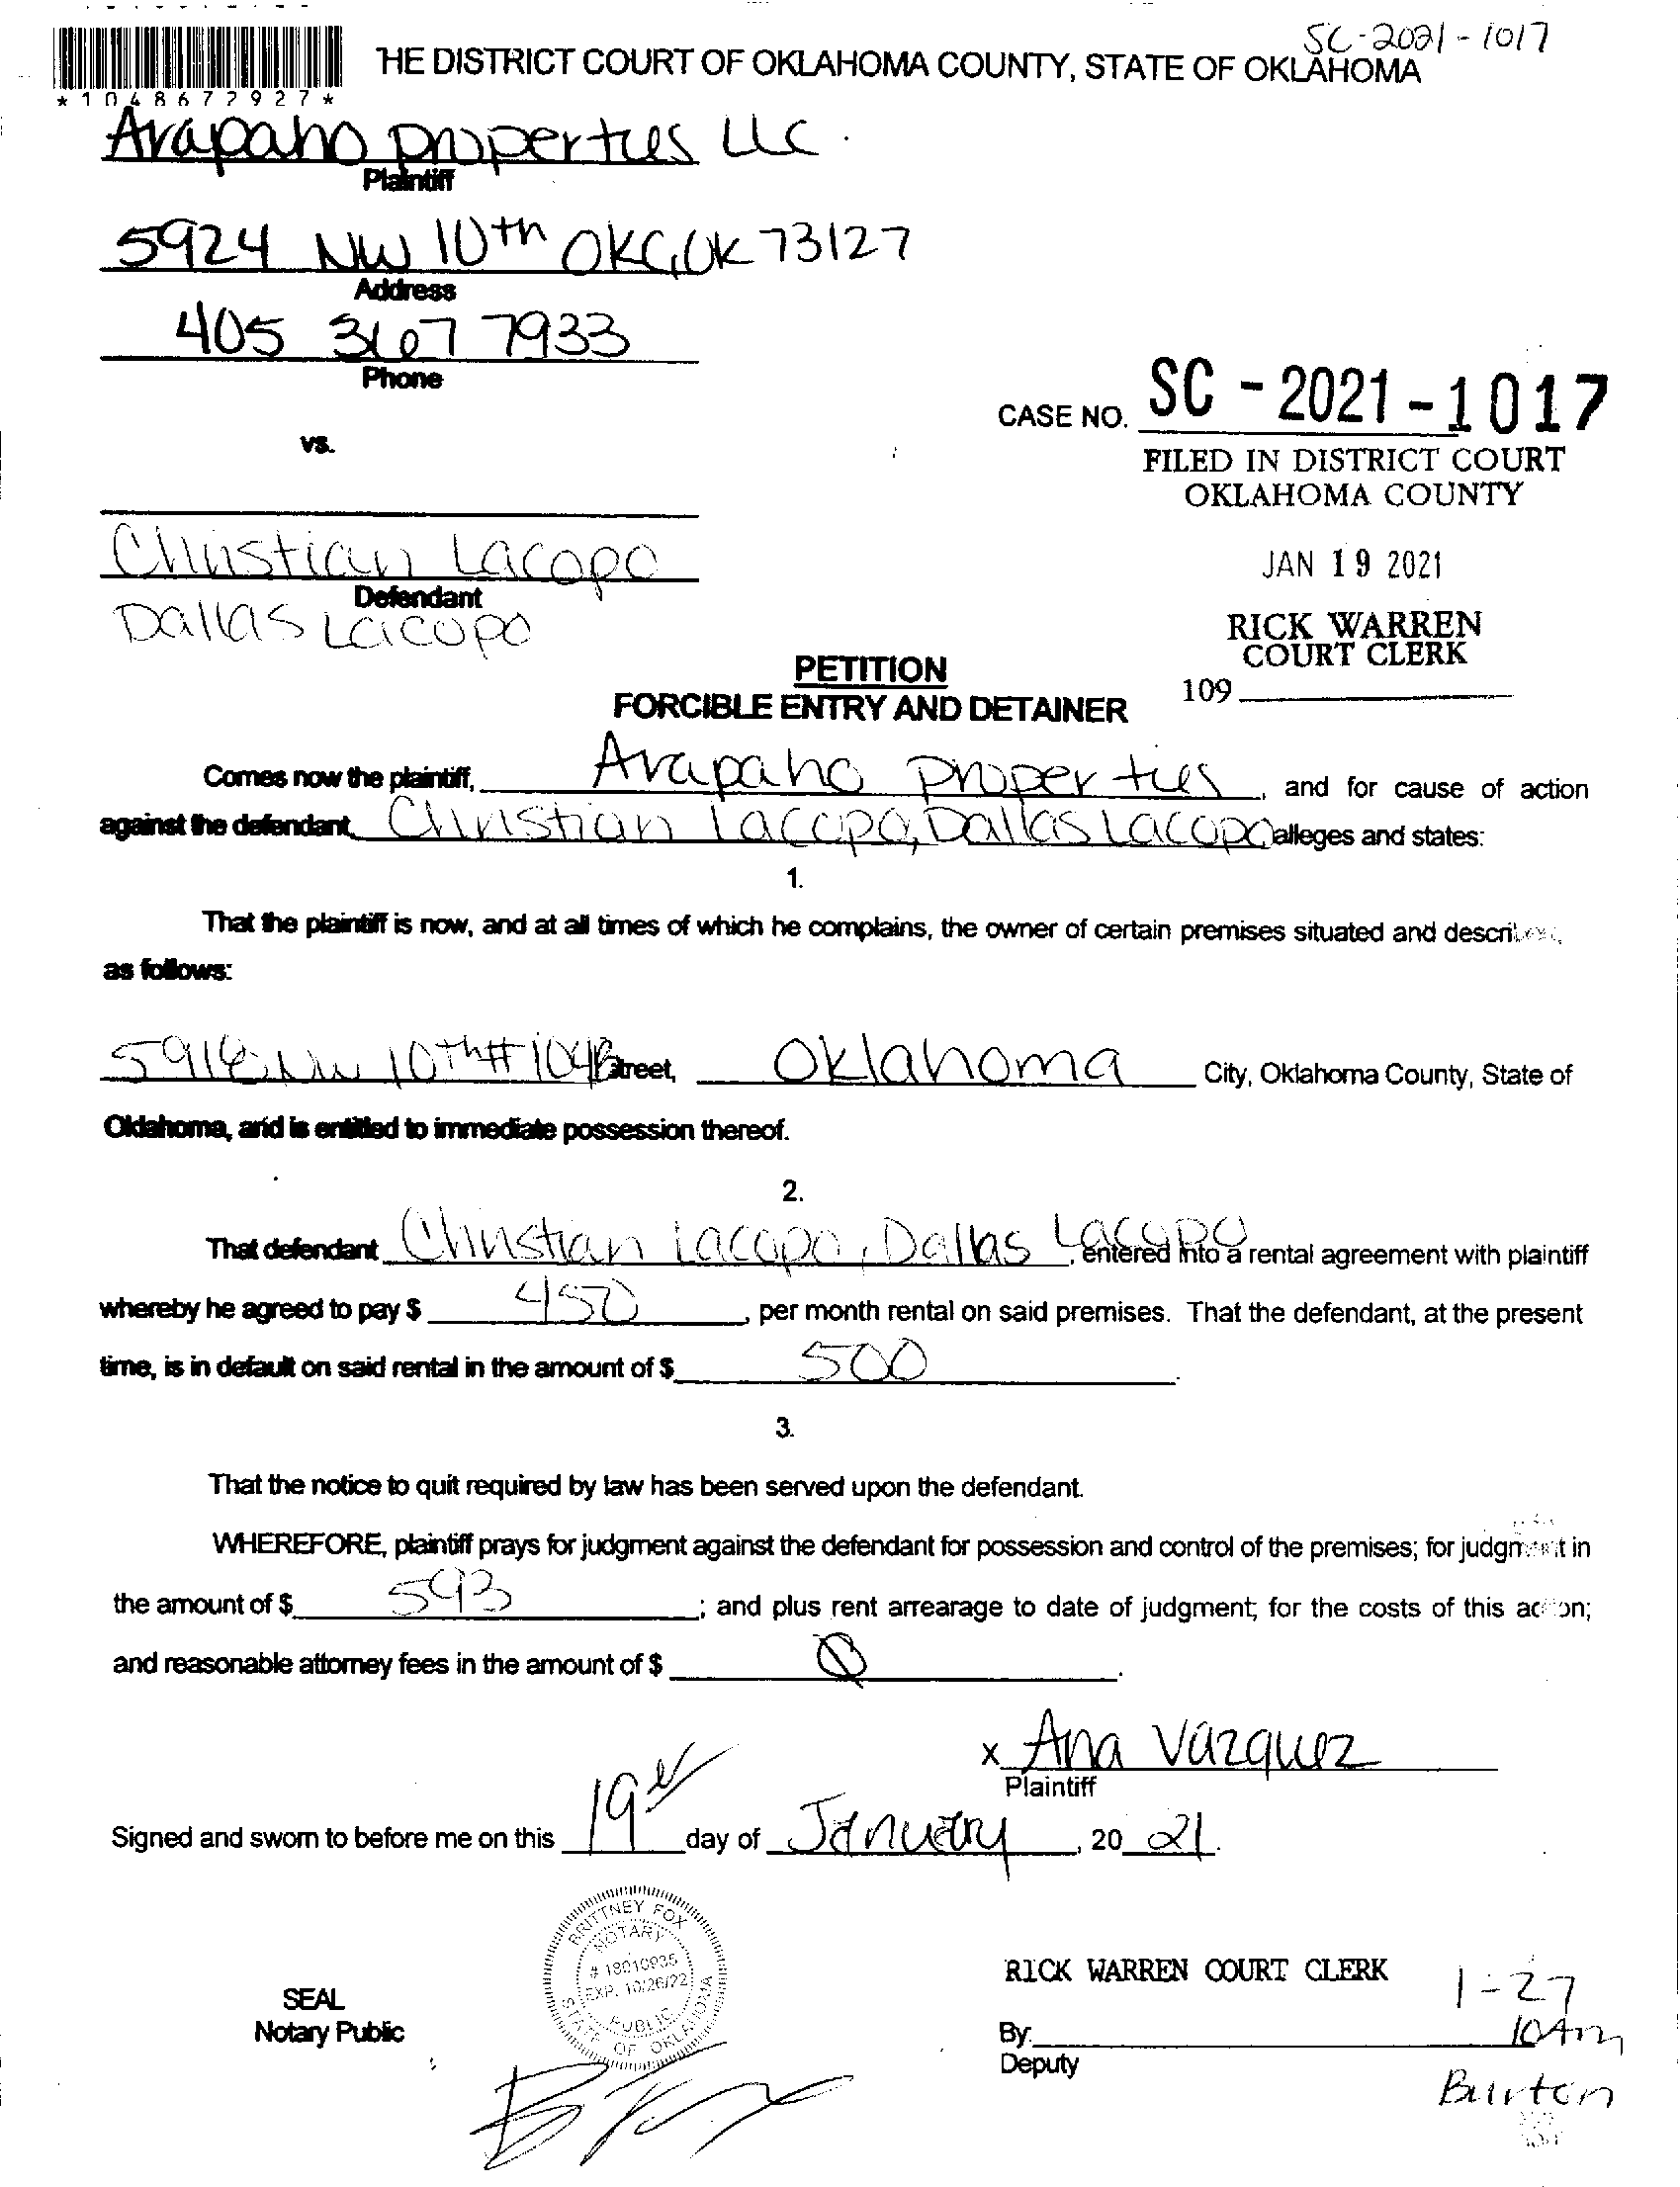 SC-2021-1017
THE DISTRICT COURT OF OKLAHOMA COUNTY, STATE OF OKLAHOMA
*1048672927*
Arapaho properties LLC.
Plaintiff
5924 NW 10th OKC, OK 73127
Address
405 367 7933
Phone
CASE NO. SC-2021-1017
vs.
FILED IN DISTRICT COURT
OKLAHOMA COUNTY
Christian Lacopo
JAN 19 2021
Defendant
Dallas Lacopo
RICK WARREN
COURT CLERK
PETITION
109
FORCIBLE ENTRY AND DETAINER
Comes now the plaintiff, Arapaho properties, and for cause of action
against the defendant, Christian Lacopo, Dallas Lacopo alleges and states:
1.
That the plaintiff is now, and at all times of which he complains, the owner of certain premises situated and described
as follows:
NW 10th # Street, Oklahoma City, Oklahoma County, State of
Oklahoma, and is entitled to immediate possession thereof.
2.
That defendant Christian Lacopo, Dallas Lacopo, entered into a rental agreement with plaintiff
whereby he agreed to pay $ 450, per month rental on said premises. That the defendant, at the present
time, is in default on said rental in the amount of $ 500.
3.
That the notice to quit required by law has been served upon the defendant.
WHEREFORE, plaintiff prays for judgment against the defendant for possession and control of the premises; for judgment in
the amount of $ 593; and plus rent arrearage to date of judgment; for the costs of this action;
and reasonable attorney fees in the amount of $ 0.
x Ana Vazquez
Plaintiff
Signed and sworn to before me on this 19 day of January, 2021.
BRITTNEY FOX
NOTARY
# 18010935
EXP. 10/26/22
PUBLIC
STATE OF OKLAHOMA
RICK WARREN COURT CLERK
1-27
SEAL
Notary Public
By:
10Am
Deputy
Burton